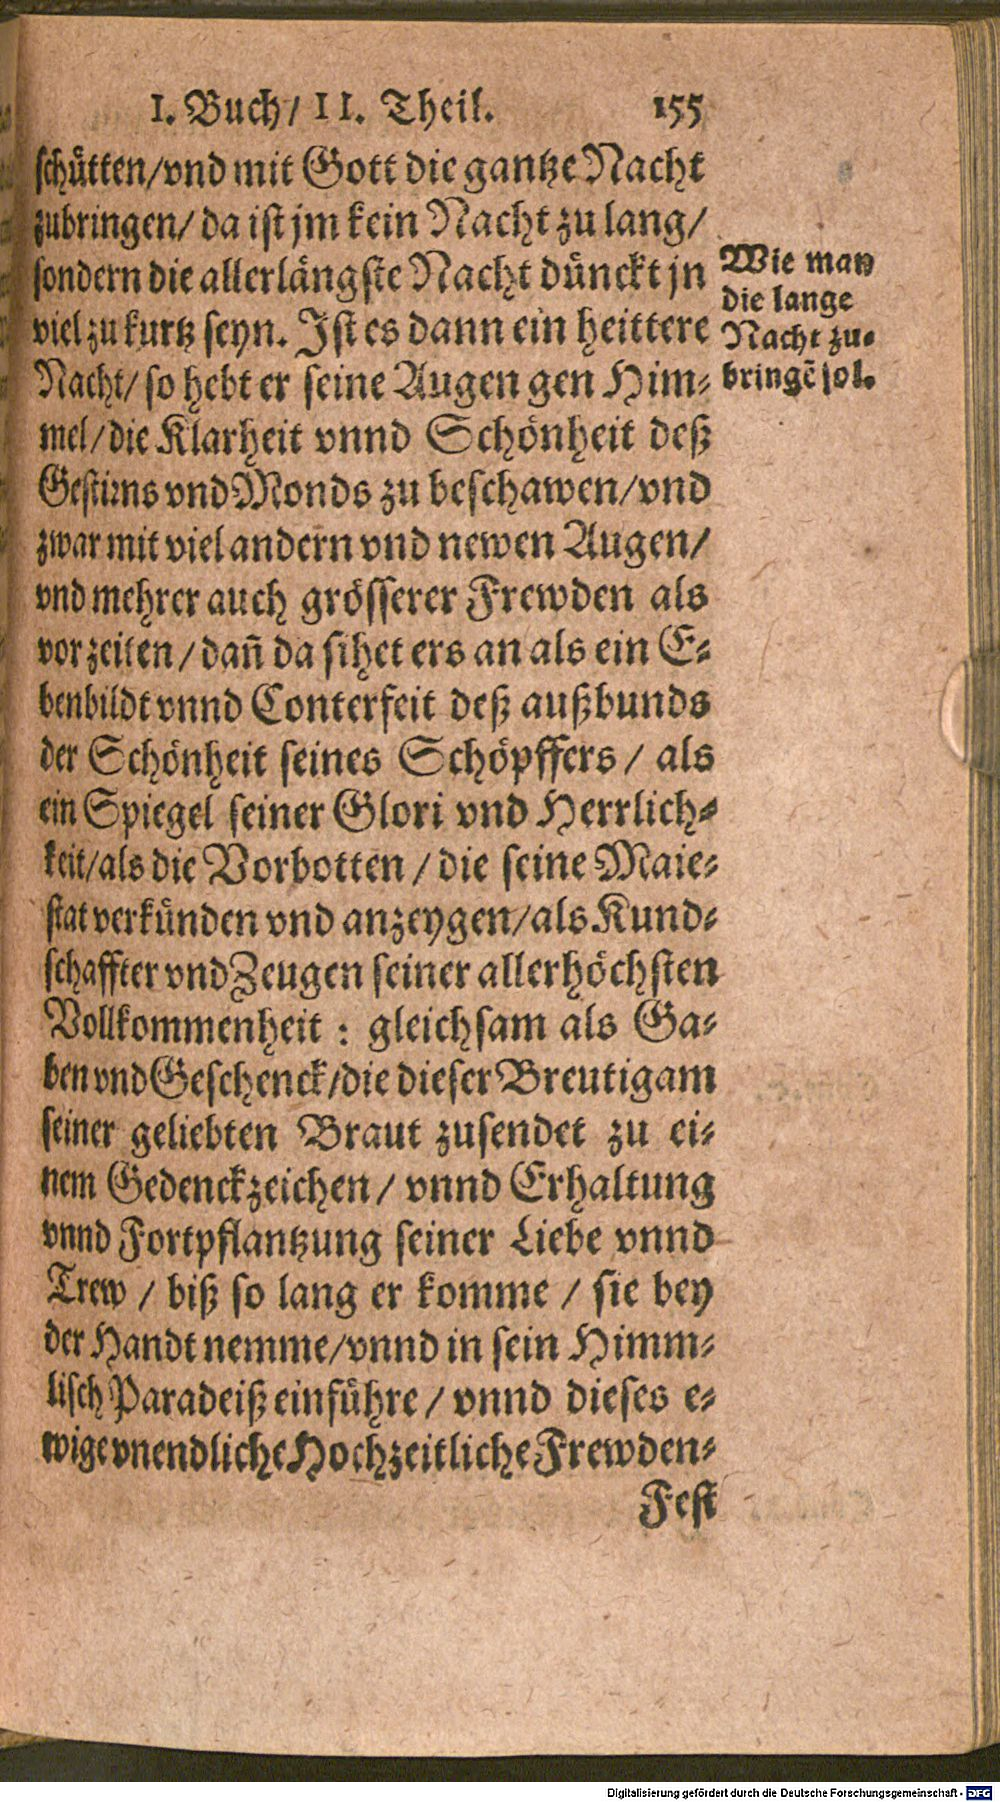 I. Buch/ II. Theil. 155
schütten/vnd mit Gott die gantze Nacht
zubringen/ da ist jm kein Nacht zu lang/
sondern die allerlängste Nacht dünckt jn
viel zu kurtz seyn. Ist es dann ein heittere
Nacht/ so hebt er seine Augen gen Him-
mel/die Klarheit vnnd Schönheit deß
Gestirns vnd Monds zu beschawen/vnd
zwar mit viel andern vnd newen Augen/
vnd mehrer auch grösserer Frewden als
vor zeiten/ dañ da sihet ers an als ein E-
benbildt vnnd Conterfeit deß außbunds
der Schönheit seines Schöpffers/ als
ein Spiegel seiner Glori vnd Herrlich-
keit/als die Vorbotten/ die seine Maie-
stat verkünden vnd anzeygen/als Kund-
schaffter vnd Zeugen seiner allerhöchsten
Vollkommenheit : gleichsam als Ga-
ben vnd Geschenck/die dieser Breutigam
seiner geliebten Braut zusendet zu ei-
nem Gedenckzeichen/ vnnd Erhaltung
vnnd Fortpflantzung seiner Liebe vnnd
Trew/ biß so lang er komme/ sie bey
der Handt nemme/vnnd in sein Himm-
lisch Paradeiß einführe/ vnnd dieses e-
wige vnendliche Hochzeitliche Frewden-
Fest
Wie man
die lange
Nacht zu-
bringẽ sol.
Digitalisierung gefördert durch die Deutsche Forschungsgemeinschaft - DFG